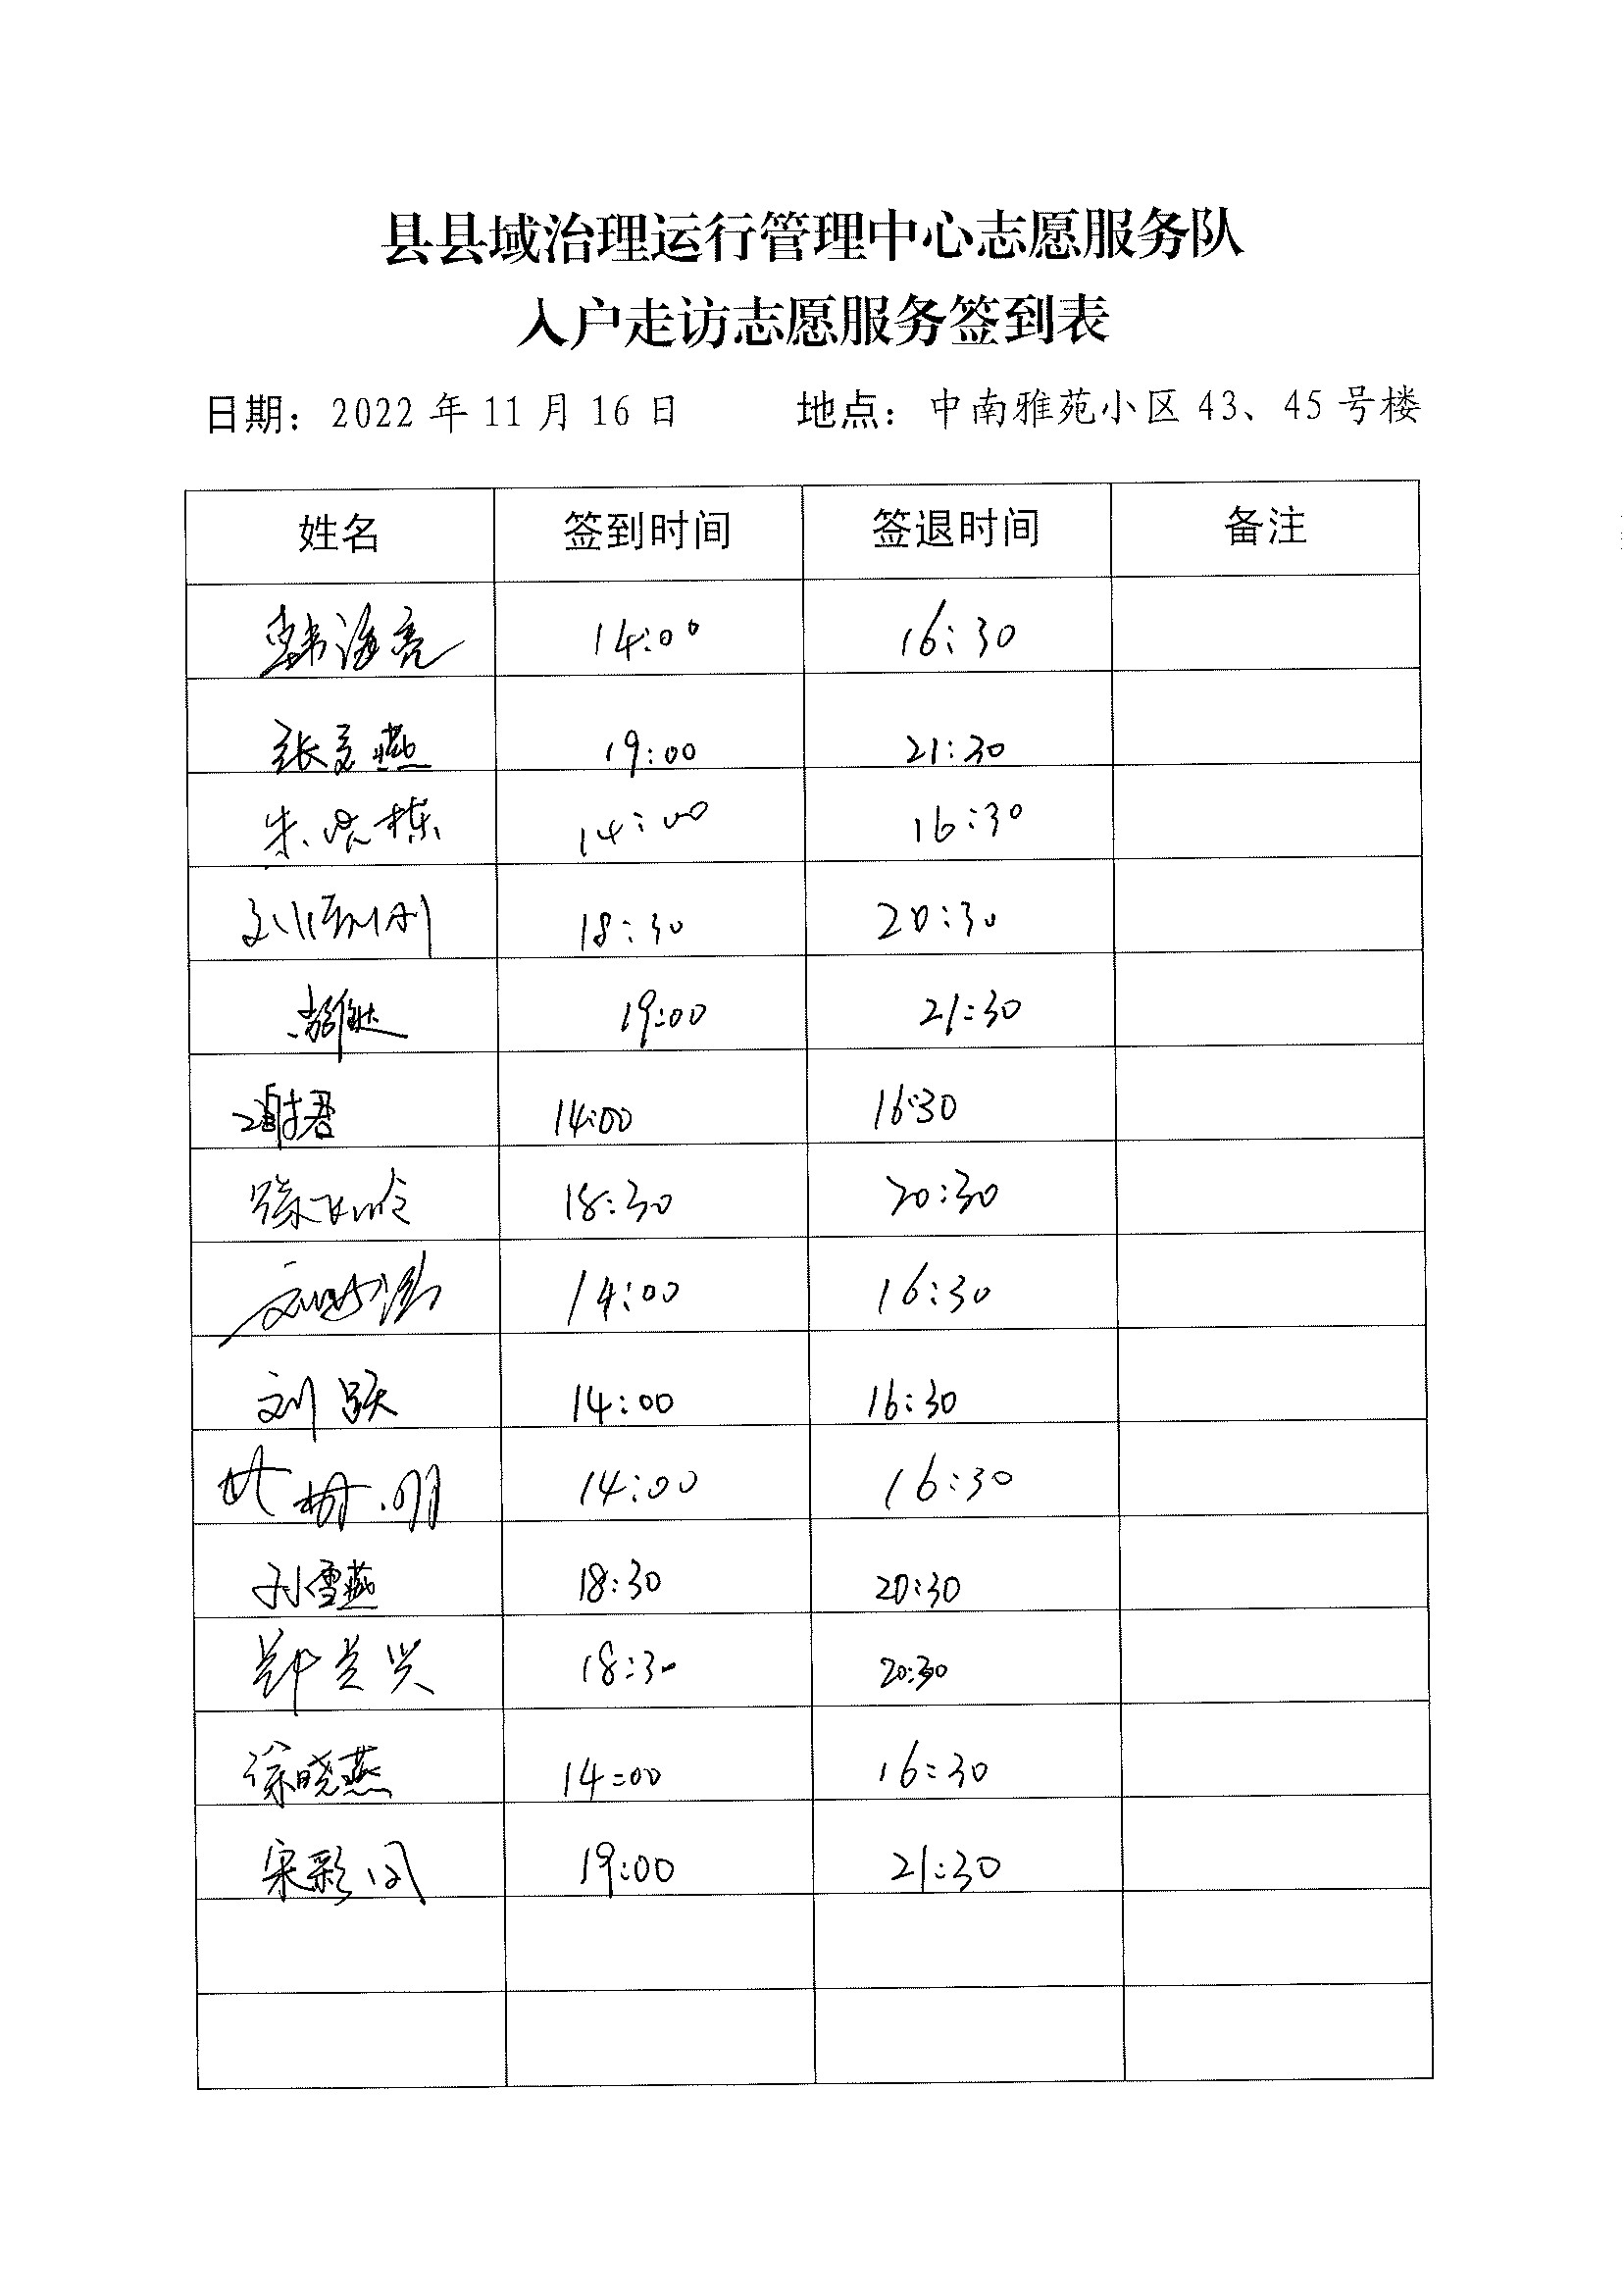 县县域治理运行管理中心志愿服务队
入户走访志愿服务签到表
日期：2022年11月16日 地点：中南雅苑小区43、45号楼
姓名 签到时间 签退时间 备注
韩海亮 14:00 16:30
张彦燕 19:00 21:30
朱 栋 14:00 16:30
18:30 20:30
19:00 21:30
谢君 14:00 16:30
18:30 20:30
14:00 16:30
刘跃 14:00 16:30
14:00 16:30
孙雪燕 18:30 20:30
郑兰兴 18:30 20:30
徐晓燕 14:00 16:30
宋彩凤 19:00 21:30